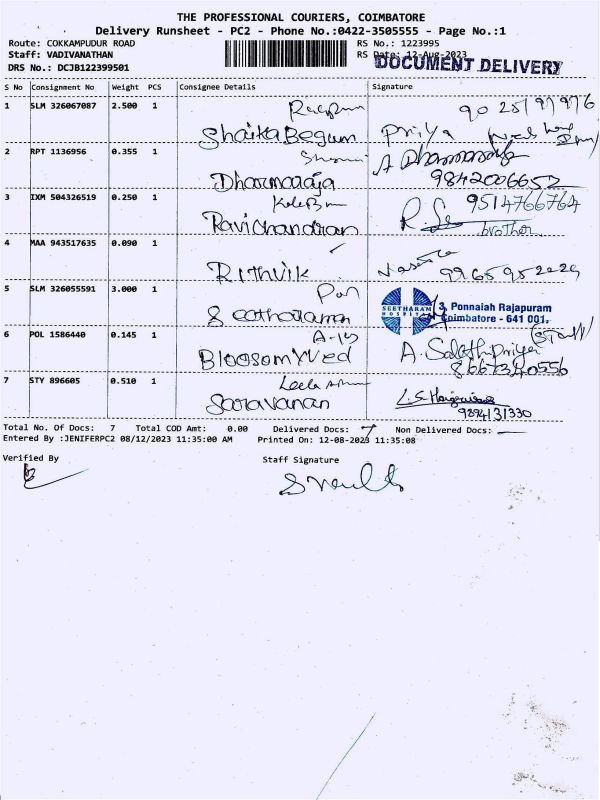 THE PROFESSIONAL COURIERS, COIMBATORE
Delivery Runsheet - PC2 - Phone No.:0422-3505555 - Page No.:1
Route: COKKAMPUDUR ROAD RS No.: 1223995
Staff: VADIVANATHAN RS Date: 12-Aug-2023
DOCUMENT DELIVERY
DRS No.: DCJB122399501
S No Consignment No Weight PCS Consignee Details Signature
1 SLM 326067087 2.500 1
Shaika Begum Priya
2 RPT 1136956 0.355 1
Dharmaraja 9842006652
3 IXM 504326519 0.250 1 9514766764
Ravichandran brother
4 MAA 943517635 0.090 1
Rithvik 9965952229
5 SLM 326055591 3.000 1
SEETHARAM HOSPITAL 3, Ponnaiah Rajapuram
Coimbatore - 641 001.
6 POL 1586440 0.145 1 (STAFF)
8667340556
7 STY 896605 0.510 1
Saravanan 9894131330
Total No. Of Docs: 7 Total COD Amt: 0.00 Delivered Docs: 7 Non Delivered Docs: —
Entered By :JENIFERPC2 08/12/2023 11:35:00 AM Printed On: 12-08-2023 11:35:08
Verified By Staff Signature